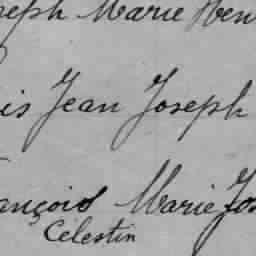 eph Marie Hen
is Jean Joseph
ançois Marie Jos
Celestin